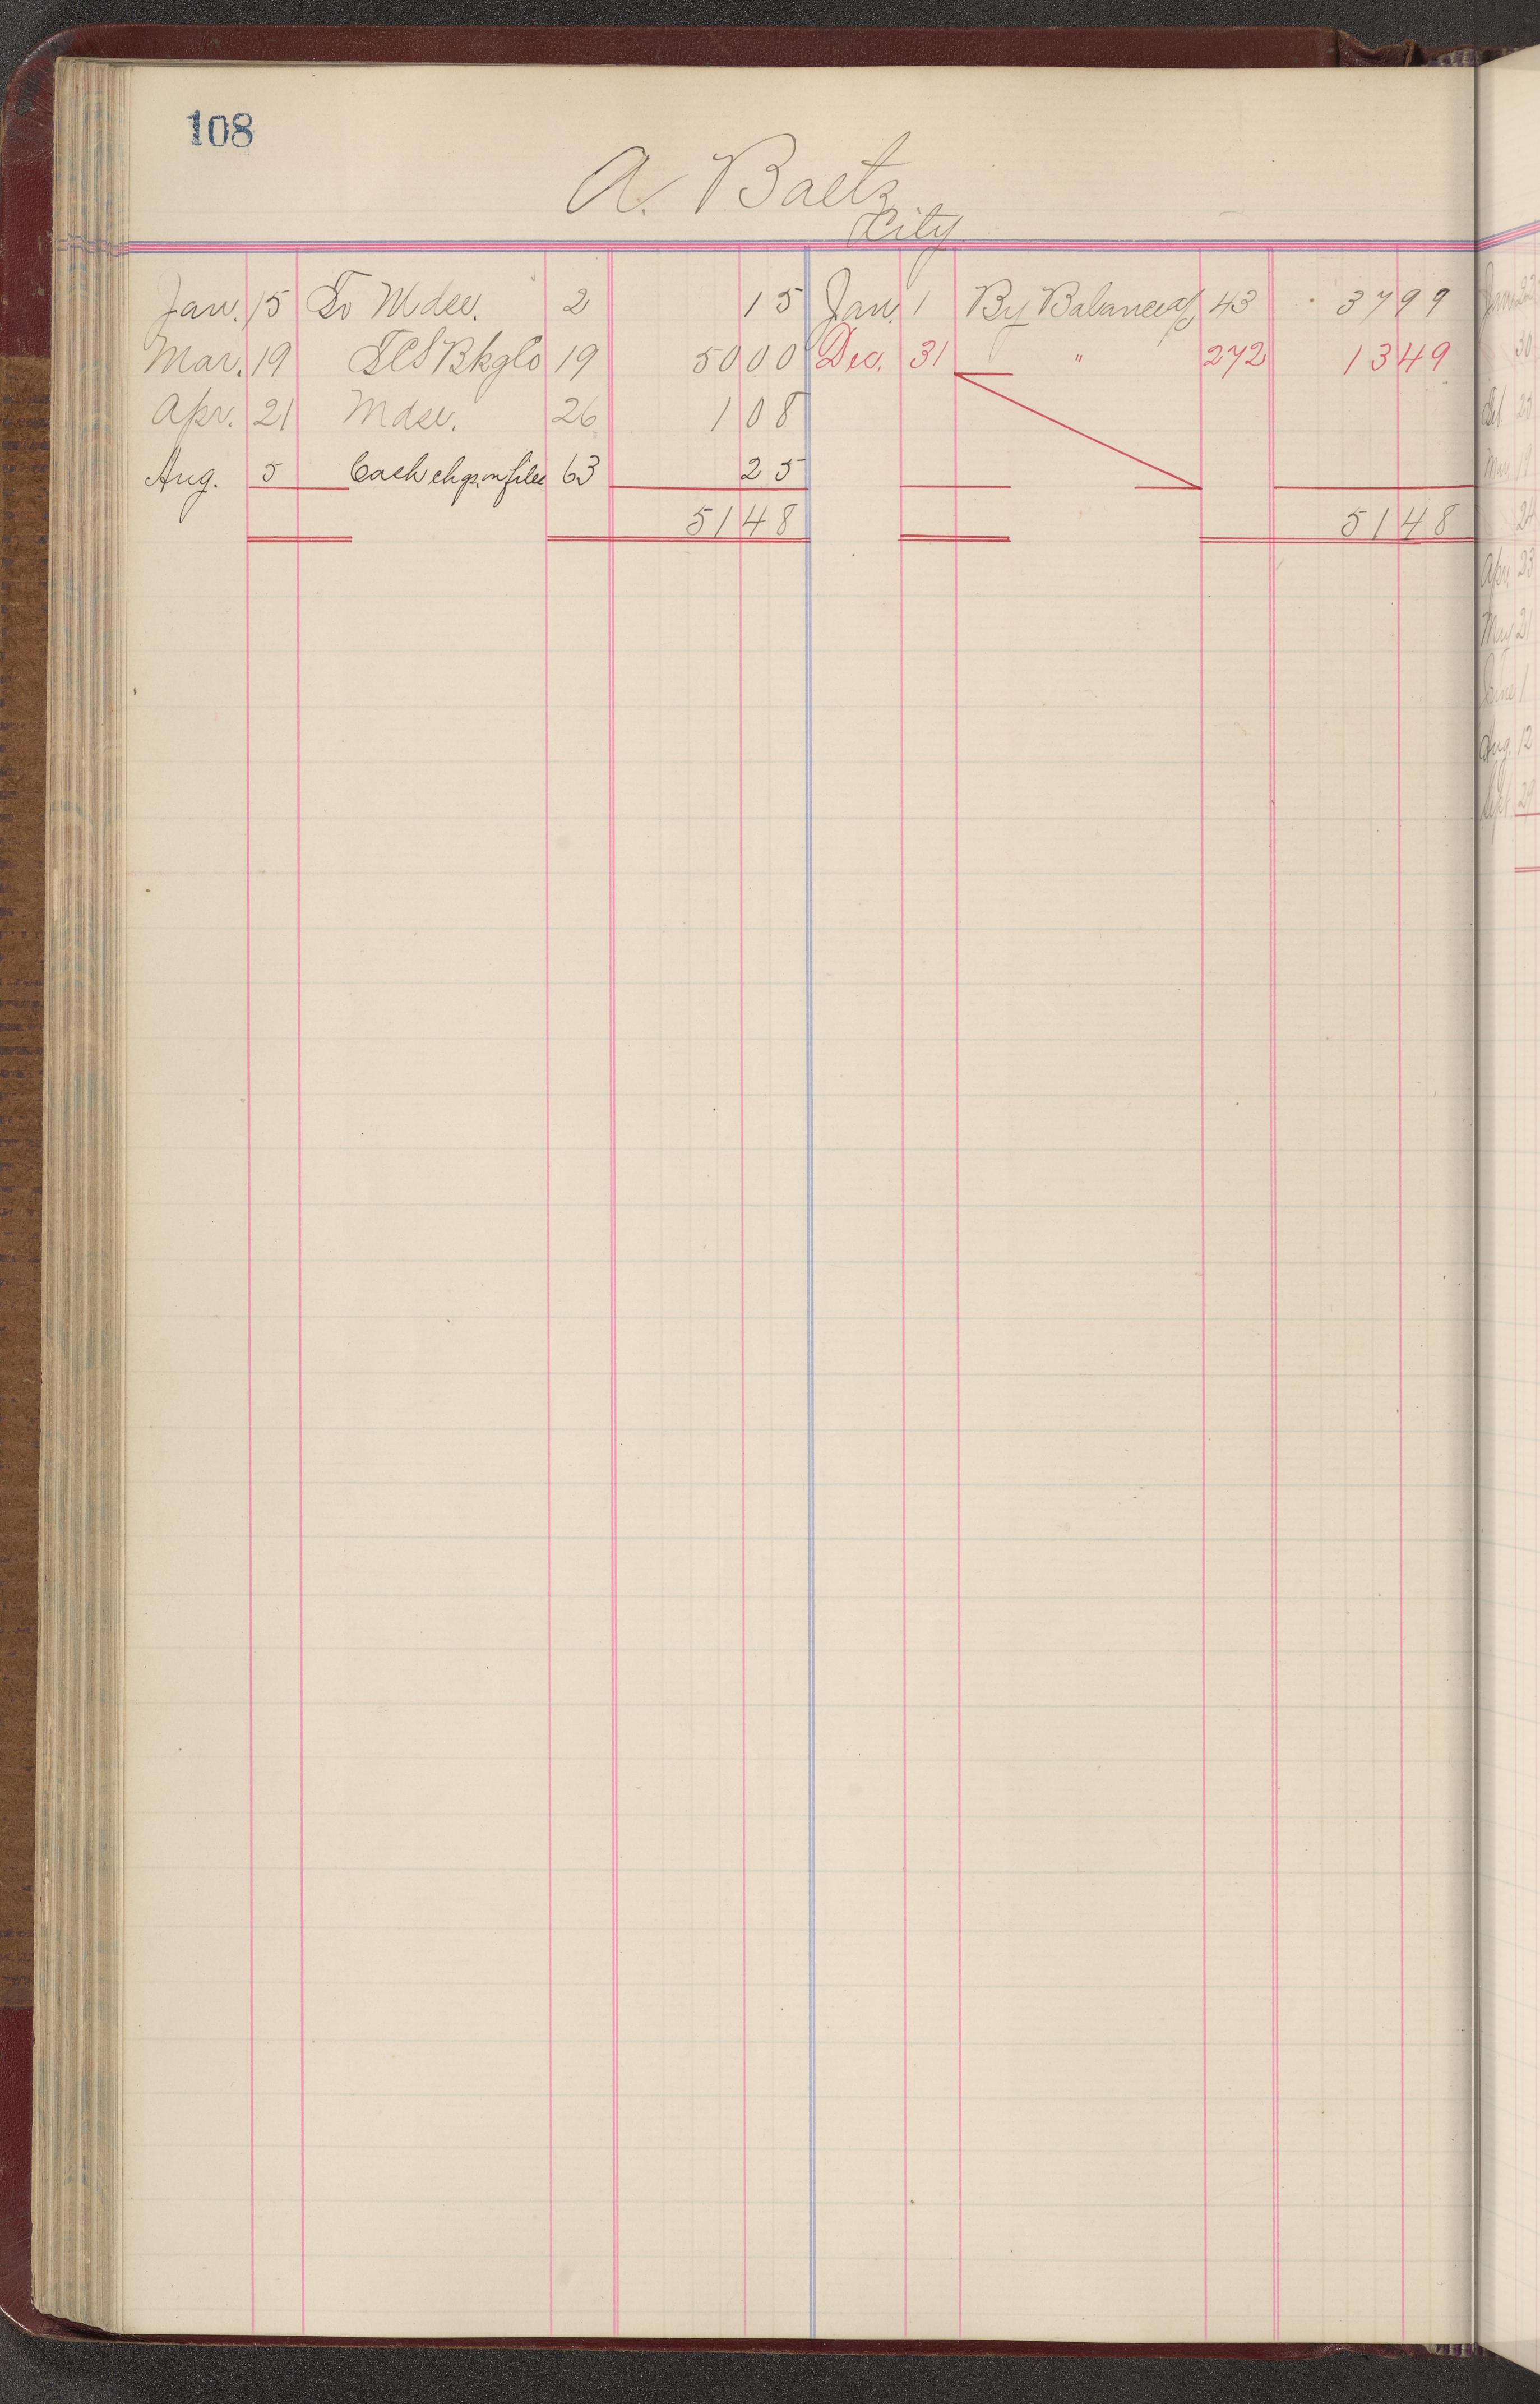 108
A. Baetz
City
Jan. 15 To Mdse. 2 15 Jan. 1 By Balance 43 37 99
Mar. 19 Bkg Co 19 50 00 Dec. 31 " 272 13 49
Apr. 21 Mdse. 26 1 08
Aug. 5 Cash chgs. on files 63 25
51 48 51 48
30
23
24
Apr 23
May 21
June 1
Aug. 12
Sept. 29